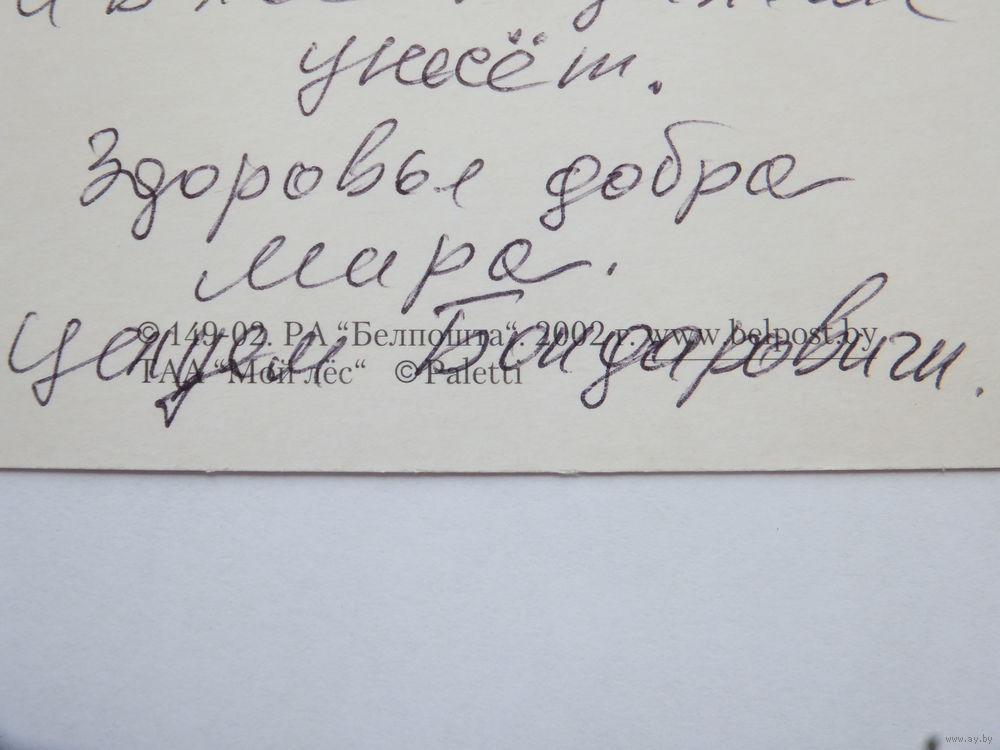 унесёт.
Здоровья добра
мира.
© 149-02. РА “Белпошта“. 2002 г. www.belpost.by
Бондаровичи.
ТАА “Мой лёс“ © Paletti
www.ay.by